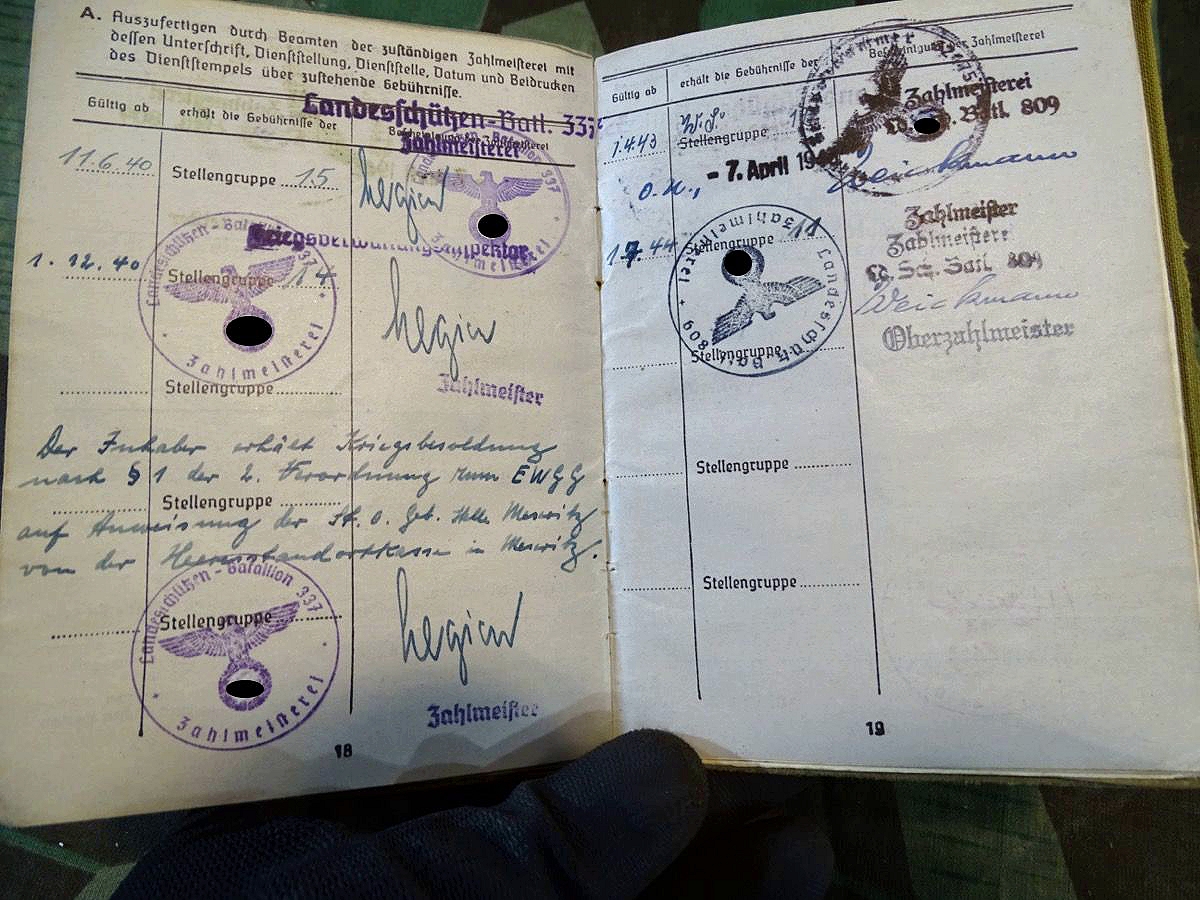 A. Auszufertigen durch Beamten der zuständigen Zahlmeisterei mit
dessen Unterschrift, Dienststellung, Dienststelle, Datum und Beidrucken
des Dienststempels über zustehende Gebührnisse.
Gültig ab
erhält die Gebührnisse der
Bescheinigung der Zahlmeisterei
Landesschützen-Batl. 337
Zahlmeisterei
11.6.40
Stellengruppe 15
Landesschützen-Bataillon 337
Zahlmeisterei
Kriegsverwaltungsinspektor
1.12.40
Stellengruppe 14
Landesschützen-Bataillon 337
Zahlmeisterei
Zahlmeister
Stellengruppe
Der Inhaber erhält Kriegsbesoldung
nach § 1 der 2. Verordnung zum EWGG
Stellengruppe
auf Anweisung der St. O. Geb. Stelle Meseritz
von der Heeresstandortkasse in Meseritz.
Landesschützen-Bataillon 337
Zahlmeisterei
Stellengruppe
Zahlmeister
18
Gültig ab
erhält die Gebührnisse der
Bescheinigung der Zahlmeisterei
Zahlmeisterei
Batl. 809
1.4.43
Stellengruppe
O.U., - 7. April 194
Weichmann
Zahlmeister
Zahlmeisterei
Ld. Sch. Batl. 809
1.7.44
Stellengruppe 11
Landesschütz. Batl. 809
Zahlmeisterei
Weichmann
Oberzahlmeister
Stellengruppe
Stellengruppe
Stellengruppe
19